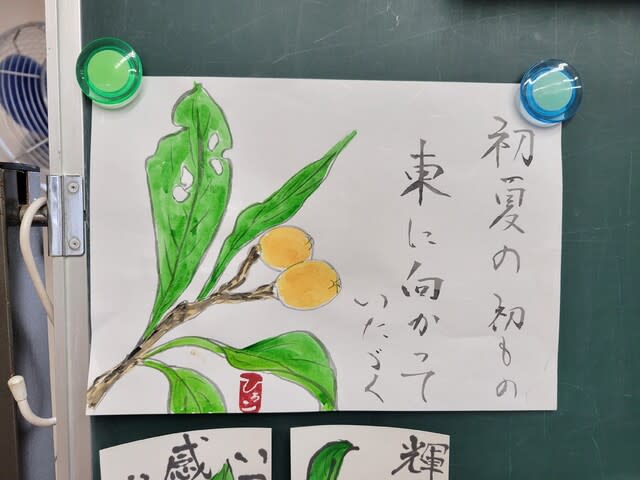 初夏の初もの
東に向かって
いただく
ひろこ
輝
い
感